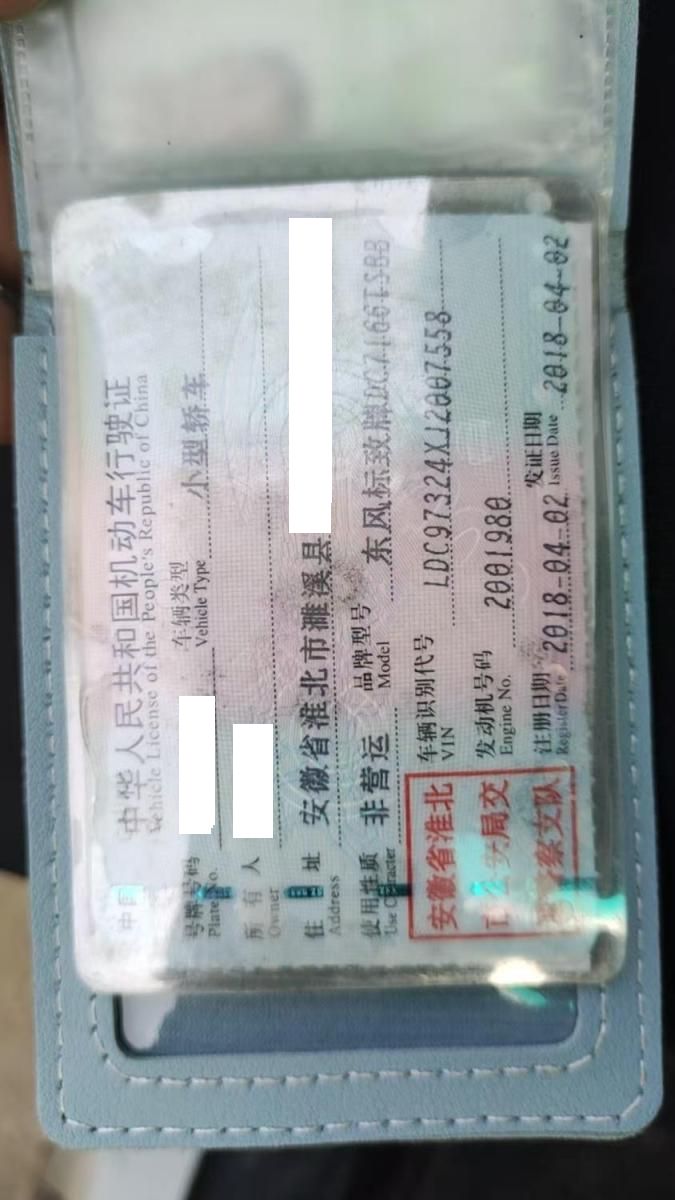 中华人民共和国机动车行驶证
Vehicle License of the People's Republic of China
号牌号码
Plate No.
车辆类型
Vehicle Type
小型轿车
所有人
Owner
住址
Address
安徽省淮北市濉溪县
使用性质
Use Character
非营运
品牌型号
Model
东风标致牌DC7166TSBB
安徽省淮北
市公安局交
通警察支队
车辆识别代号
VIN
LDC97324XJ2007558
发动机号码
Engine No.
2001980
注册日期
Register Date
2018-04-02
发证日期
Issue Date
2018-04-02